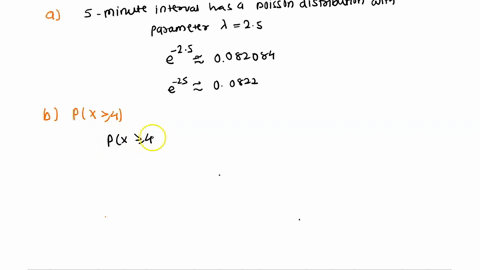 a) 5-minute interval has a poisson distribution with
parameter λ = 2.5
e^-2.5 ≈ 0.082084
e^-25 ≈ 0.0822
b) P(x ≥ 4)
P(x ≥ 4